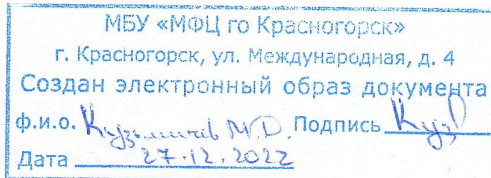 МБУ «МФЦ го Красногорск»
г. Красногорск, ул. Международная, д. 4
Создан электронный образ документа
ф.и.о. Кузьмичев М.D. Подпись Куз
Дата 27.12.2022